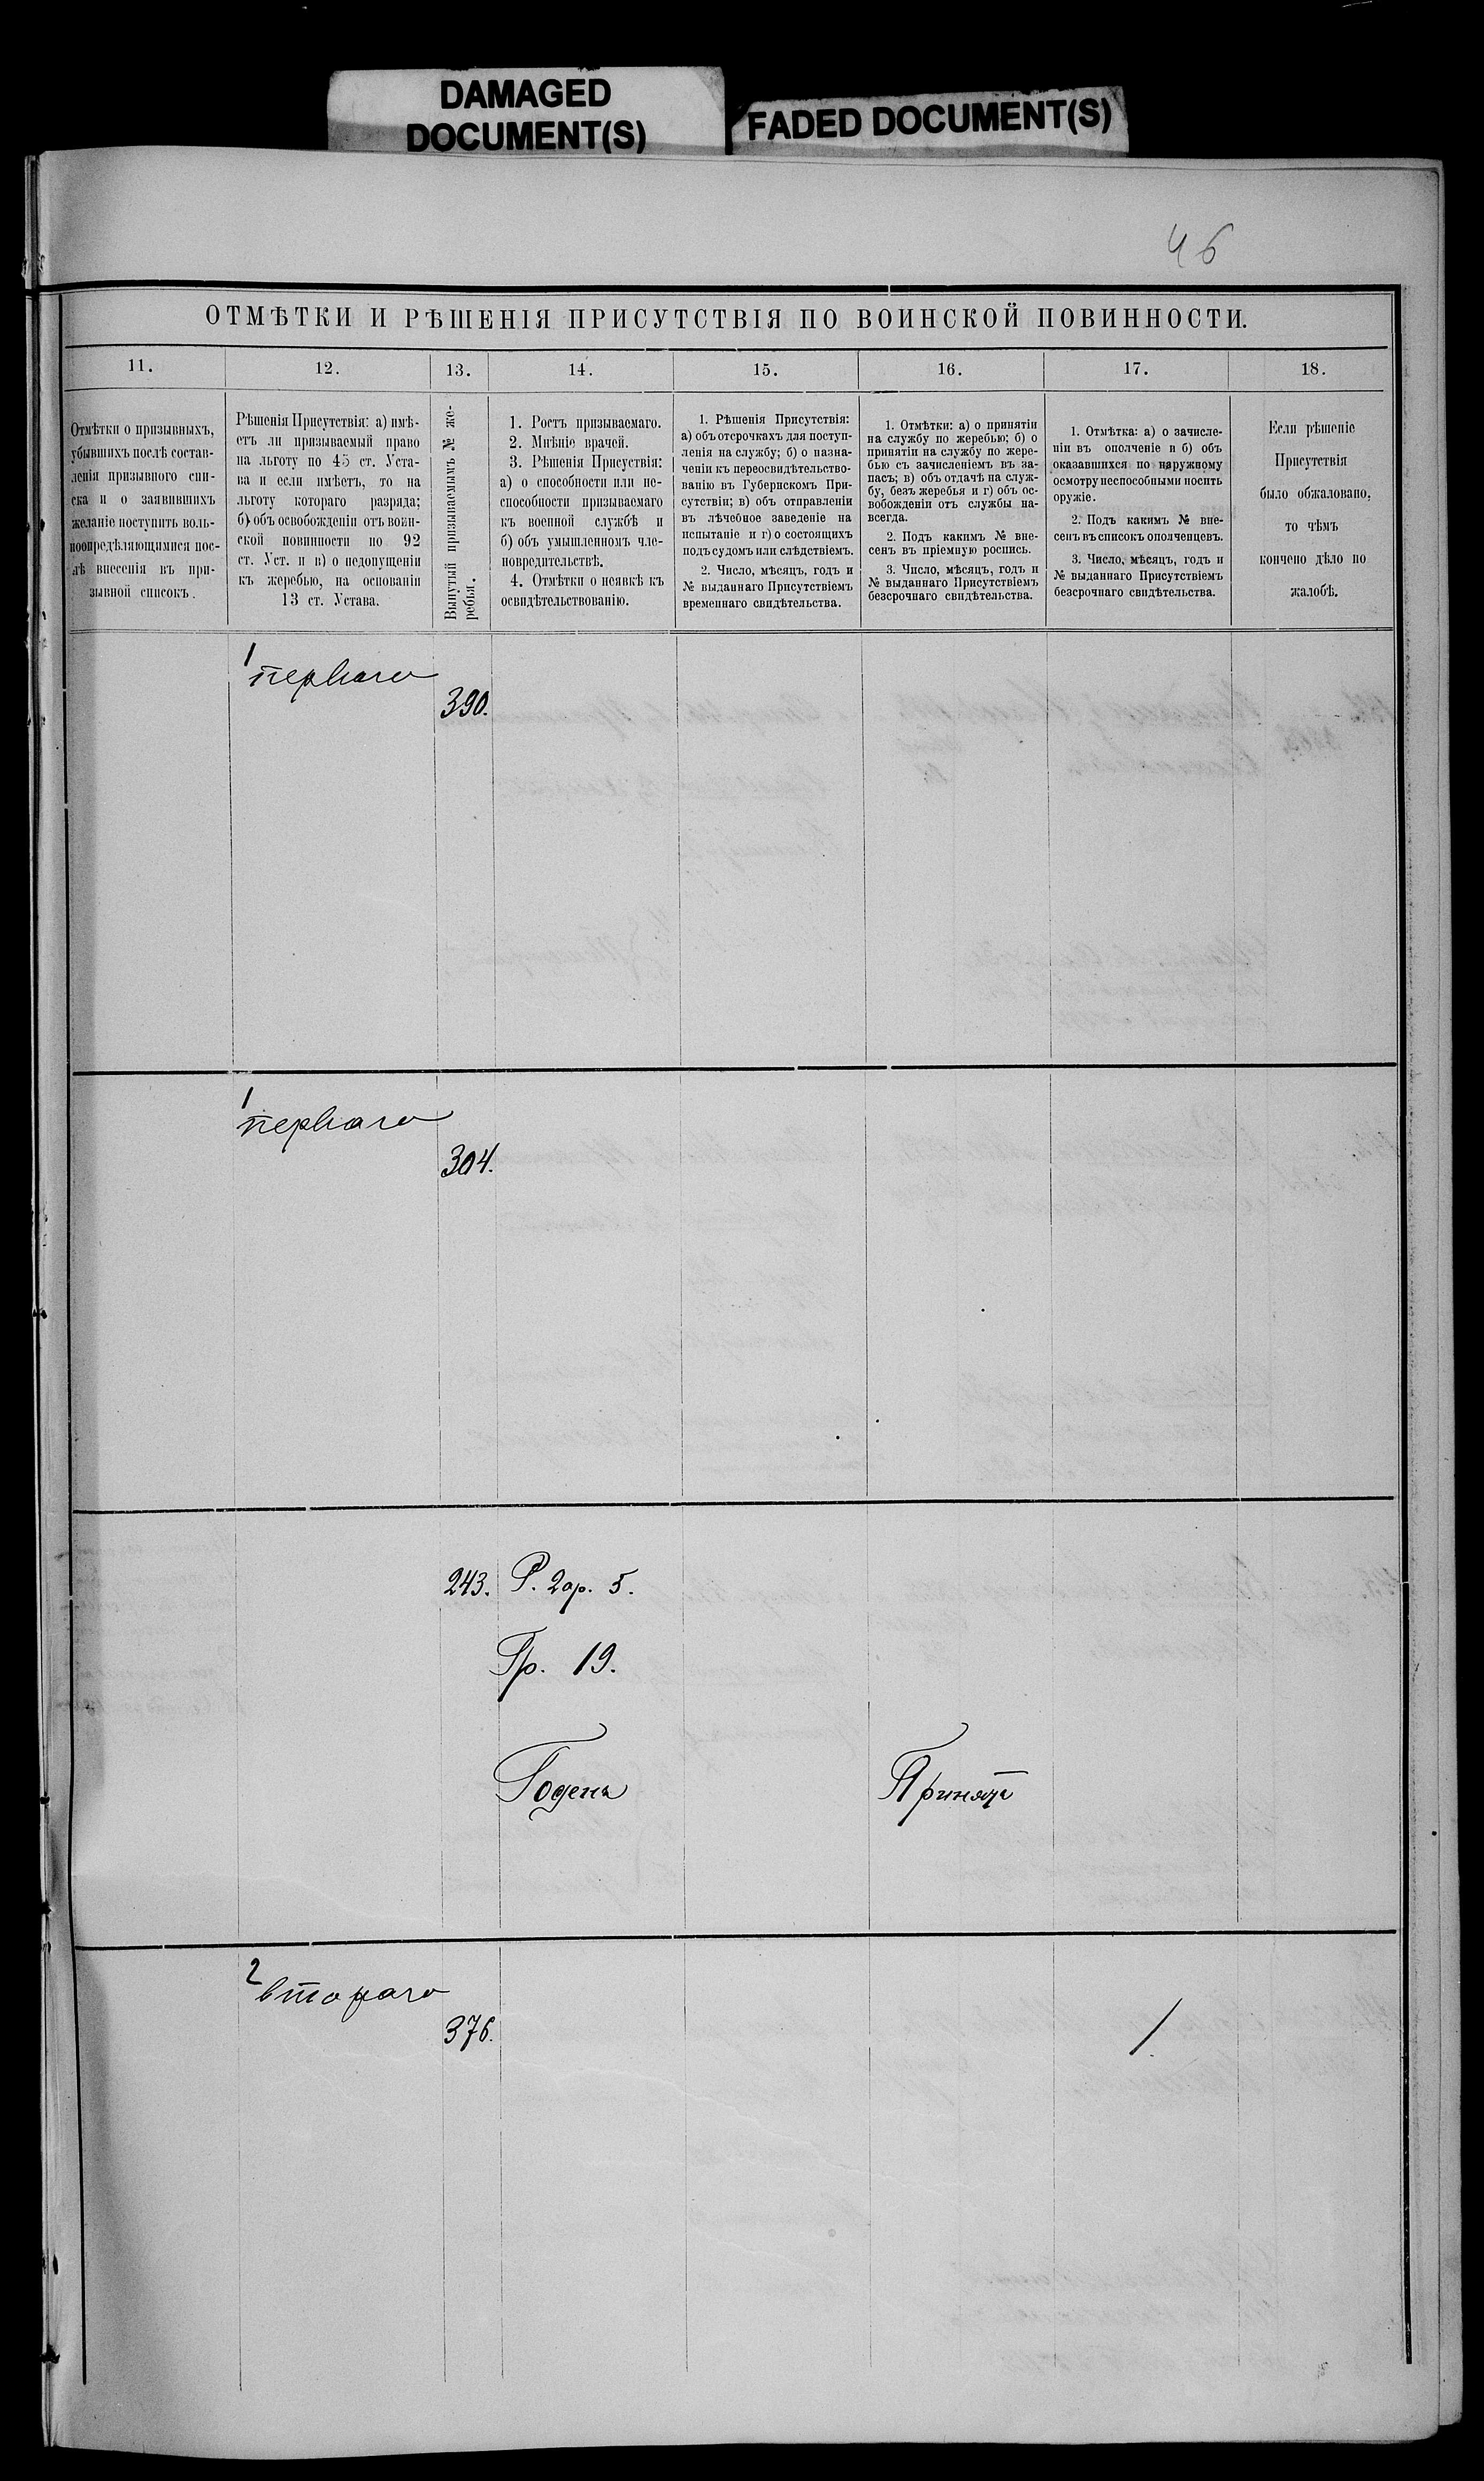 DAMAGED
DOCUMENT(S)
FADED DOCUMENT(S)
46
ОТМѢТКИ И РѢШЕНІЯ ПРИСУТСТВІЯ ПО ВОИНСКОЙ ПОВИННОСТИ.
11.
12.
13.
14.
15.
16.
17.
18.
Отмѣтки о призывныхъ,
убывшихъ послѣ состав-
ленія призывного спи-
ска и о заявившихъ
желаніе поступить воль-
ноопредѣляющимися пос-
лѣ внесенія въ при-
зывной списокъ.
Рѣшенія Присутствія: а) имѣ-
етъ ли призываемый право
на льготу по 45 ст. Уста-
ва и если имѣетъ, то на
льготу котораго разряда;
б) объ освобожденіи отъ воин-
ской повинности по 92
ст. Уст. и в) о недопущеніи
къ жеребью, на основаніи
13 ст. Устава.
Вынутый призываемымъ № же-
ребья.
1. Ростъ призываемаго.
2. Мнѣніе врачей.
3. Рѣшенія Присуствія:
а) о способности или не-
способности призываемаго
къ военной службѣ и
б) объ умышленномъ чле-
новредительствѣ.
4. Отмѣтки о неявкѣ къ
освидѣтельствованію.
1. Рѣшенія Присутствія:
а) объ отсрочкахъ для поступ-
ленія на службу; б) о назна-
ченіи къ переосвидѣтельство-
ванію въ Губернскомъ При-
сутствіи; в) объ отправленіи
въ лѣчебное заведеніе на
испытаніе и г) о состоящихъ
подъ судомъ или слѣдствіемъ.
2. Число, мѣсяцъ, годъ и
№ выданнаго Присутствіемъ
временнаго свидѣтельства.
1. Отмѣтки: а) о принятіи
на службу по жеребью; б) о
принятіи на службу по жере-
бью съ зачисленіемъ въ за-
пасъ; в) объ отдачѣ на служ-
бу, безъ жеребья и г) объ ос-
вобожденіи отъ службы на-
всегда.
2. Подъ какимъ № вне-
сенъ въ пріемную роспись.
3. Число, мѣсяцъ, годъ и
№ выданнаго Присутствіемъ
безсрочнаго свидѣтельства.
1. Отмѣтка: а) о зачисле-
ніи въ ополченіе и б) объ
оказавшихся по наружному
осмотру неспособными носить
оружіе.
2. Подъ какимъ № вне-
сенъ въ списокъ ополченцевъ.
3. Число, мѣсяцъ, годъ и
№ выданнаго Присутствіемъ
безсрочнаго свидѣтельства.
Если рѣшеніе
Присутствія
было обжаловано,
то чѣмъ
кончено дѣло по
жалобѣ.
1
перваго
390.
1
перваго
304.
243. Р. 2ар. 5.
Гр. 19.
Годенъ
Принятъ
2
втораго
376.
1